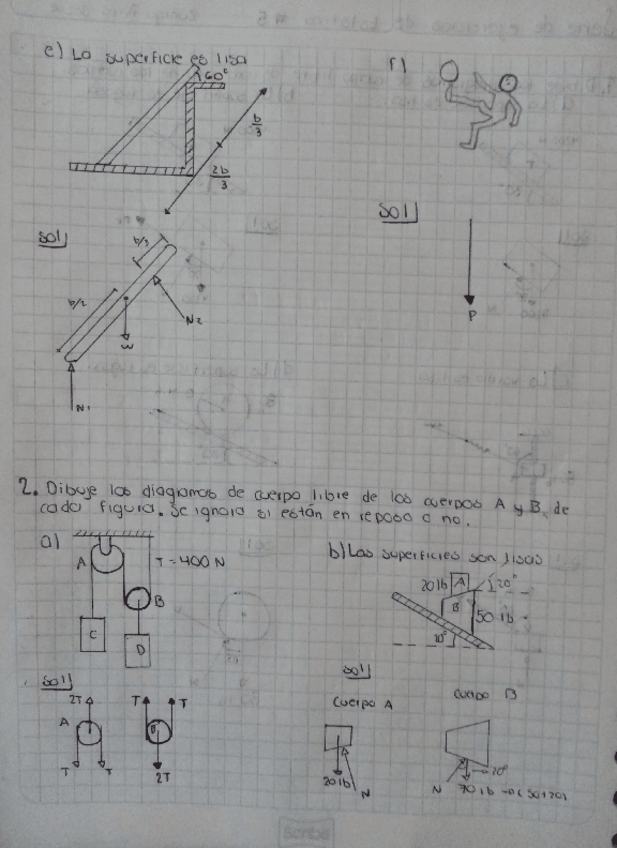 e) La superficie es lisa
60°
b/3
2b/3
Sol
b/3
b/2
N2
W
N1
f)
Sol
P
2. Dibuje los diagramas de cuerpo libre de los cuerpos A y B, de
cada figura. Se ignora si están en reposo o no.
a)
A
T = 400 N
B
C
D
b) Las superficies son lisas
20 lb
A
20°
B
50 lb
10°
Sol
2T
A
T
T
T
T
B
2T
Sol
Cuerpo A
20 lb
N
Cuerpo B
10°
N
70 lb → (50+20)
Scribe